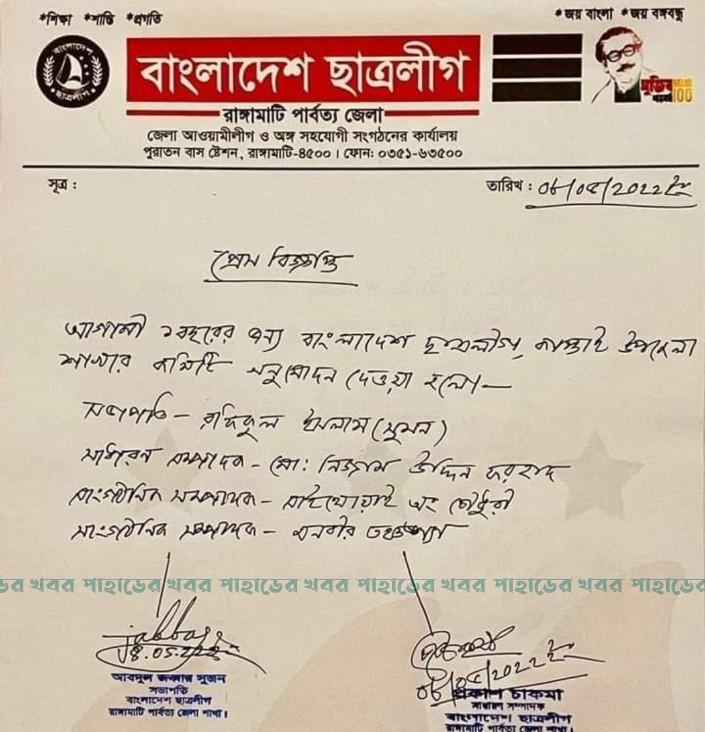 *শিক্ষা *শান্তি *প্রগতি
*জয় বাংলা *জয় বঙ্গবন্ধু
বাংলাদেশ
ছাত্রলীগ
বাংলাদেশ ছাত্রলীগ
মুজিব
100
রাঙ্গামাটি পার্বত্য জেলা
জেলা আওয়ামীলীগ ও অঙ্গ সহযোগী সংগঠনের কার্যালয়
পুরাতন বাস ষ্টেশন, রাঙ্গামাটি-৪৫০০। ফোন: ০৩৫১-৬৩৫০০
সূত্র :
তারিখ : ০৮/০৫/২০২২ ইং
প্রেস বিজ্ঞপ্তি
আগামী ১ বছরের জন্য বাংলাদেশ ছাত্রলীগ, কাপ্তাই উপজেলা
শাখার কমিটি অনুমোদন দেওয়া হলো—
সভাপতি - রফিকুল ইসলাম (সুমন)
সাধারন সম্পাদক - মো: নিজাম উদ্দিন ফরহাদ
সাংগঠনিক সম্পাদক - মাইথোয়াই অং চৌধুরী
সাংগঠনিক সম্পাদক - তনচংগ্যা
ডের খবর পাহাড়ের খবর পাহাড়ের খবর পাহাড়ের খবর পাহাড়ের খবর পাহাড়ের
08.05.222
০৮/০৫/২০২২ ইং
আবদুল জব্বার সুজন
সভাপতি
বাংলাদেশ ছাত্রলীগ
রাঙ্গামাটি পার্বত্য জেলা শাখা।
প্রকাশ চাকমা
সাধারণ সম্পাদক
বাংলাদেশ ছাত্রলীগ
রাঙ্গামাটি পার্বত্য জেলা শাখা।